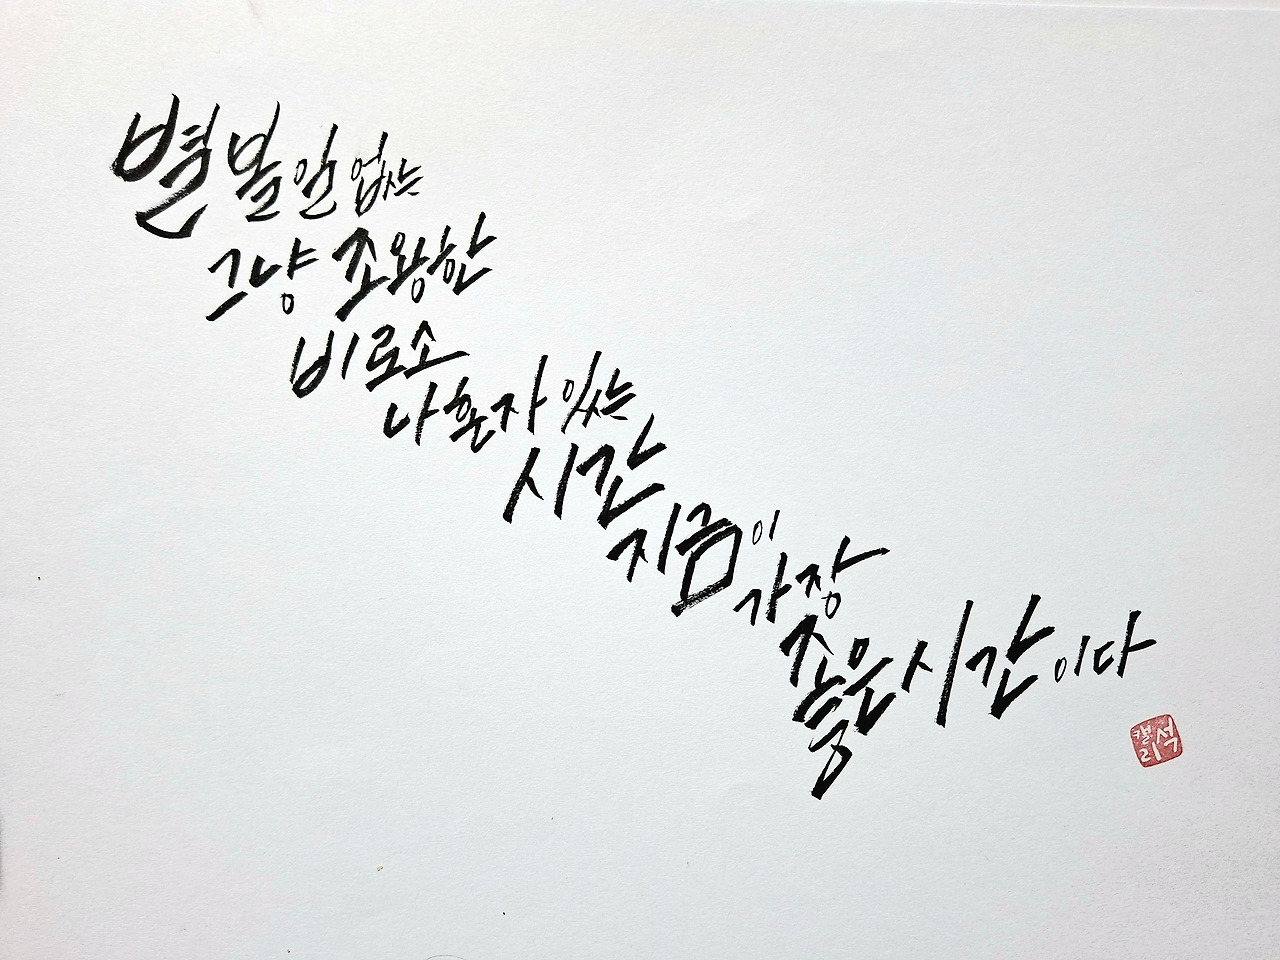 별 볼 일 없는
그냥 조왕한
비로소
나 혼자 있는
시간
지금이
가장
좋은 시간이다
캘석
리